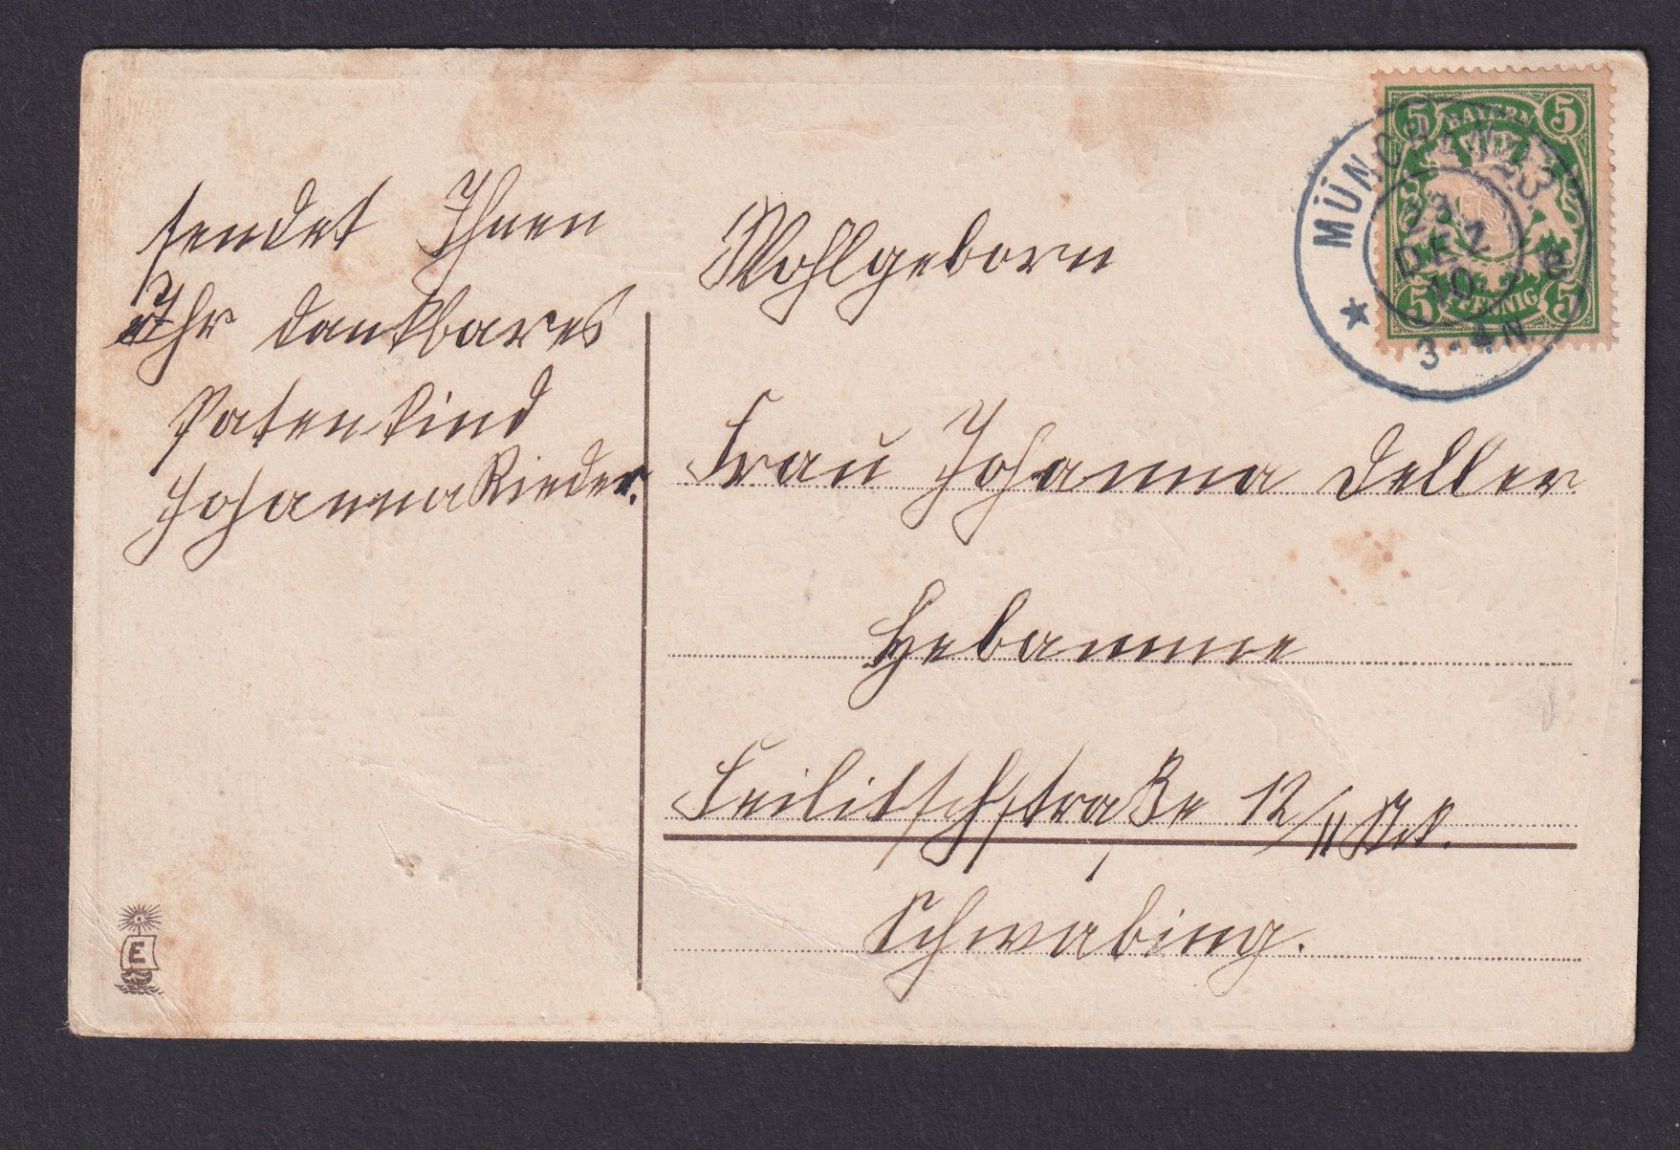 sendet Ihnen
Ihr dankbares
Patenkind
Johanna Rieder.
Wohlgeborn
Frau Johanna Deller
Hebamme
Feilitschstraße 12/II
Schwabing.
BAYERN
5 5
5 PFENNIG 5
MÜNCHEN 23.
23.
DEZ
10
3-4 N
E